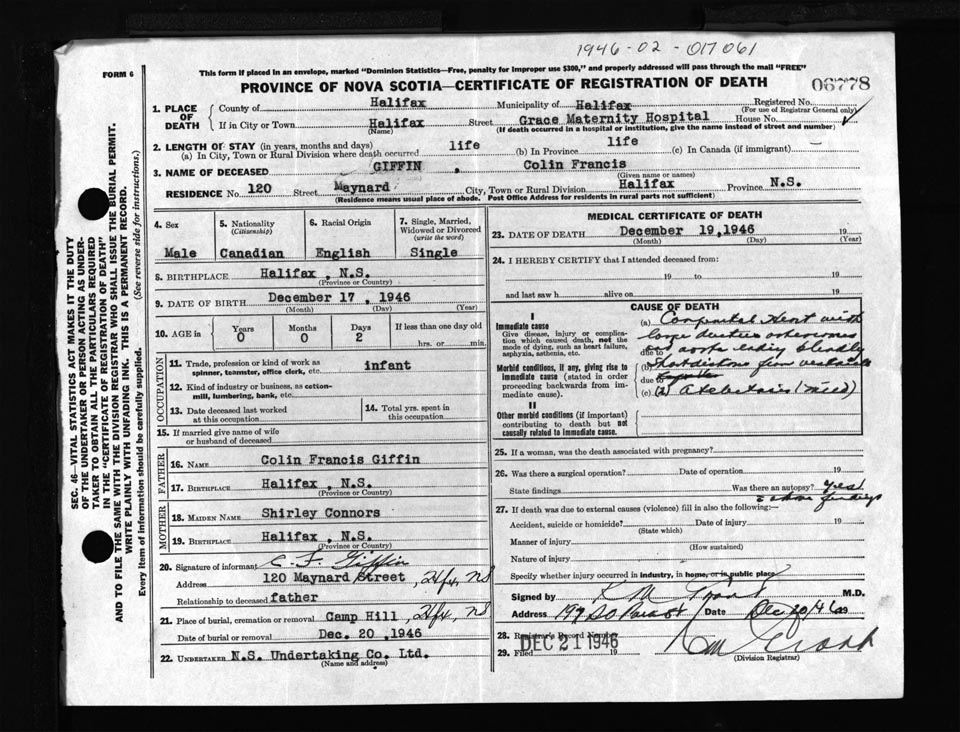 1946-02-017061
FORM 6
This form if placed in an envelope, marked "Dominion Statistics—Free, penalty for improper use $300," and properly addressed will pass through the mail "FREE"
PROVINCE OF NOVA SCOTIA—CERTIFICATE OF REGISTRATION OF DEATH
06778
1. PLACE OF DEATH
County of Halifax Municipality of Halifax Registered No.
(For use of Registrar General only)
If in City or Town Halifax Street Grace Maternity Hospital House No.
(Name) (If death occurred in a hospital or institution, give the name instead of street and number)
2. LENGTH OF STAY (in years, months and days)
(a) In City, Town or Rural Division where death occurred life (b) In Province life (c) In Canada (if immigrant) —
3. NAME OF DECEASED GIFFIN , Colin Francis
(Given name or names)
RESIDENCE No. 120 Street Maynard City, Town or Rural Division Halifax Province N.S.
(Residence means usual place of abode. Post Office Address for residents in rural parts not sufficient)
4. Sex
Male
5. Nationality
(Citizenship)
Canadian
6. Racial Origin
English
7. Single, Married, Widowed or Divorced
(write the word)
Single
8. BIRTHPLACE Halifax , N.S.
(Province or Country)
9. DATE OF BIRTH December 17 , 1946
(Month) (Day) (Year)
10. AGE in Years Months Days If less than one day old
0 0 2 hrs. or min.
OCCUPATION
11. Trade, profession or kind of work as spinner, teamster, office clerk, etc. infant
12. Kind of industry or business, as cotton-mill, lumbering, bank, etc.
13. Date deceased last worked at this occupation
14. Total yrs. spent in this occupation
15. If married give name of wife or husband of deceased
FATHER
16. NAME Colin Francis Giffin
17. BIRTHPLACE Halifax , N.S.
(Province or Country)
MOTHER
18. MAIDEN NAME Shirley Connors
19. BIRTHPLACE Halifax , N.S.
(Province or Country)
20. Signature of informant C. F. Giffin
Address 120 Maynard Street, Hfx, NS
Relationship to deceased father
21. Place of burial, cremation or removal Camp Hill, Hfx, NS
Date of burial or removal Dec. 20 ,1946
22. UNDERTAKER N.S. Undertaking Co. Ltd.
(Name and address)
MEDICAL CERTIFICATE OF DEATH
23. DATE OF DEATH December 19,1946 19
(Month) (Day) (Year)
24. I HEREBY CERTIFY that I attended deceased from:
19 to 19
and last saw h alive on 19
CAUSE OF DEATH
I
Immediate cause
Give disease, injury or complication which caused death, not the mode of dying, such as heart failure, asphyxia, asthenia, etc.
(a) Congenital Heart with
large
due to
Morbid conditions, if any, giving rise to immediate cause (stated in order proceeding backwards from immediate cause).
(b)
due to
(c) (2) Atelectasis (mild)
II
Other morbid conditions (if important) contributing to death but not causally related to immediate cause.
25. If a woman, was the death associated with pregnancy?
26. Was there a surgical operation? Date of operation 19
State findings Was there an autopsy? Yes.
above findings
27. If death was due to external causes (violence) fill in also the following:—
Accident, suicide or homicide? Date of injury 19
(State which)
Manner of injury
(How sustained)
Nature of injury
Specify whether injury occurred in industry, in home, or in public place
Signed by K M Grant M.D.
Address 199 So Park St Date Dec 20/46 19
28. Registrar's Record Number
29. Filed DEC 21 1946 19
(Division Registrar)
SEC. 46—VITAL STATISTICS ACT MAKES IT THE DUTY
OF THE UNDERTAKER OR PERSON ACTING AS UNDER-
TAKER TO OBTAIN ALL THE PARTICULARS REQUIRED
IN THE "CERTIFICATE OF REGISTRATION OF DEATH"
AND TO FILE THE SAME WITH THE DIVISION REGISTRAR WHO SHALL ISSUE THE BURIAL PERMIT.
WRITE PLAINLY WITH UNFADING INK. THIS IS A PERMANENT RECORD.
Every item of information should be carefully supplied. (See reverse side for instructions.)